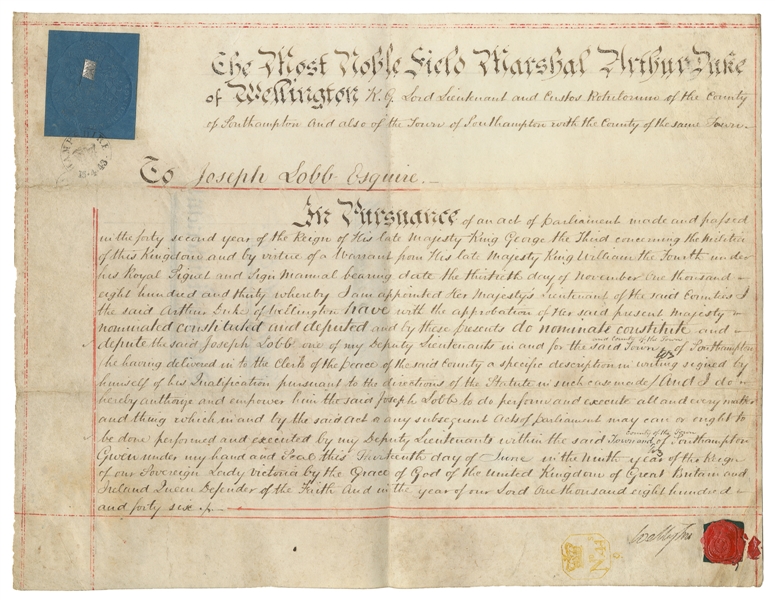 The Most Noble Field Marshal Arthur Duke
of Wellington K.G. Lord Lieutenant and Custos Rotulorum of the County
of Southampton And also of the Town of Southampton with the County of the same Town.
To Joseph Lobb Esquire.
In Pursuance of an act of Parliament made and passed
in the forty second year of the Reign of His late Majesty King George the Third concerning the Militia
of this Kingdom and by virtue of a Warrant from His late Majesty King William the Fourth under
his Royal Signet and Sign Manual bearing date the thirtieth day of November One thousand
eight hundred and thirty whereby I am appointed Her Majesty's Lieutenant of the said Counties I
the said Arthur Duke of Wellington have with the approbation of Her said present Majesty
nominated constituted and deputed and by these presents do nominate constitute and
and County of the Town
depute the said Joseph Lobb one of my Deputy Lieutenants in and for the said Town of Southampton
(he having delivered in to the Clerk of the Peace of the said County a specific description in writing signed by
himself of his Qualification pursuant to the directions of the Statute in such case made) And I do
hereby authorize and empower him the said Joseph Lobb to do perform and execute all and every matter
and thing which in and by the said act or any subsequent Acts of Parliament may can or ought to
County of the Town
be done performed and executed by my Deputy Lieutenants within the said Town and of Southampton
Given under my hand and Seal this Thirteenth day of June in the Ninth year of the Reign
of our Sovereign Lady Victoria by the Grace of God of the United Kingdom of Great Britain and
Ireland Queen Defender of the Faith And in the year of our Lord One thousand eight hundred
and forty six
Wellington